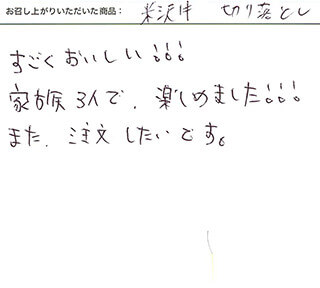 お召し上がりいただいた商品： 米沢牛 切り落とし
すごくおいしい!!!
家族3人で、楽しめました!!!
また、注文したいです。